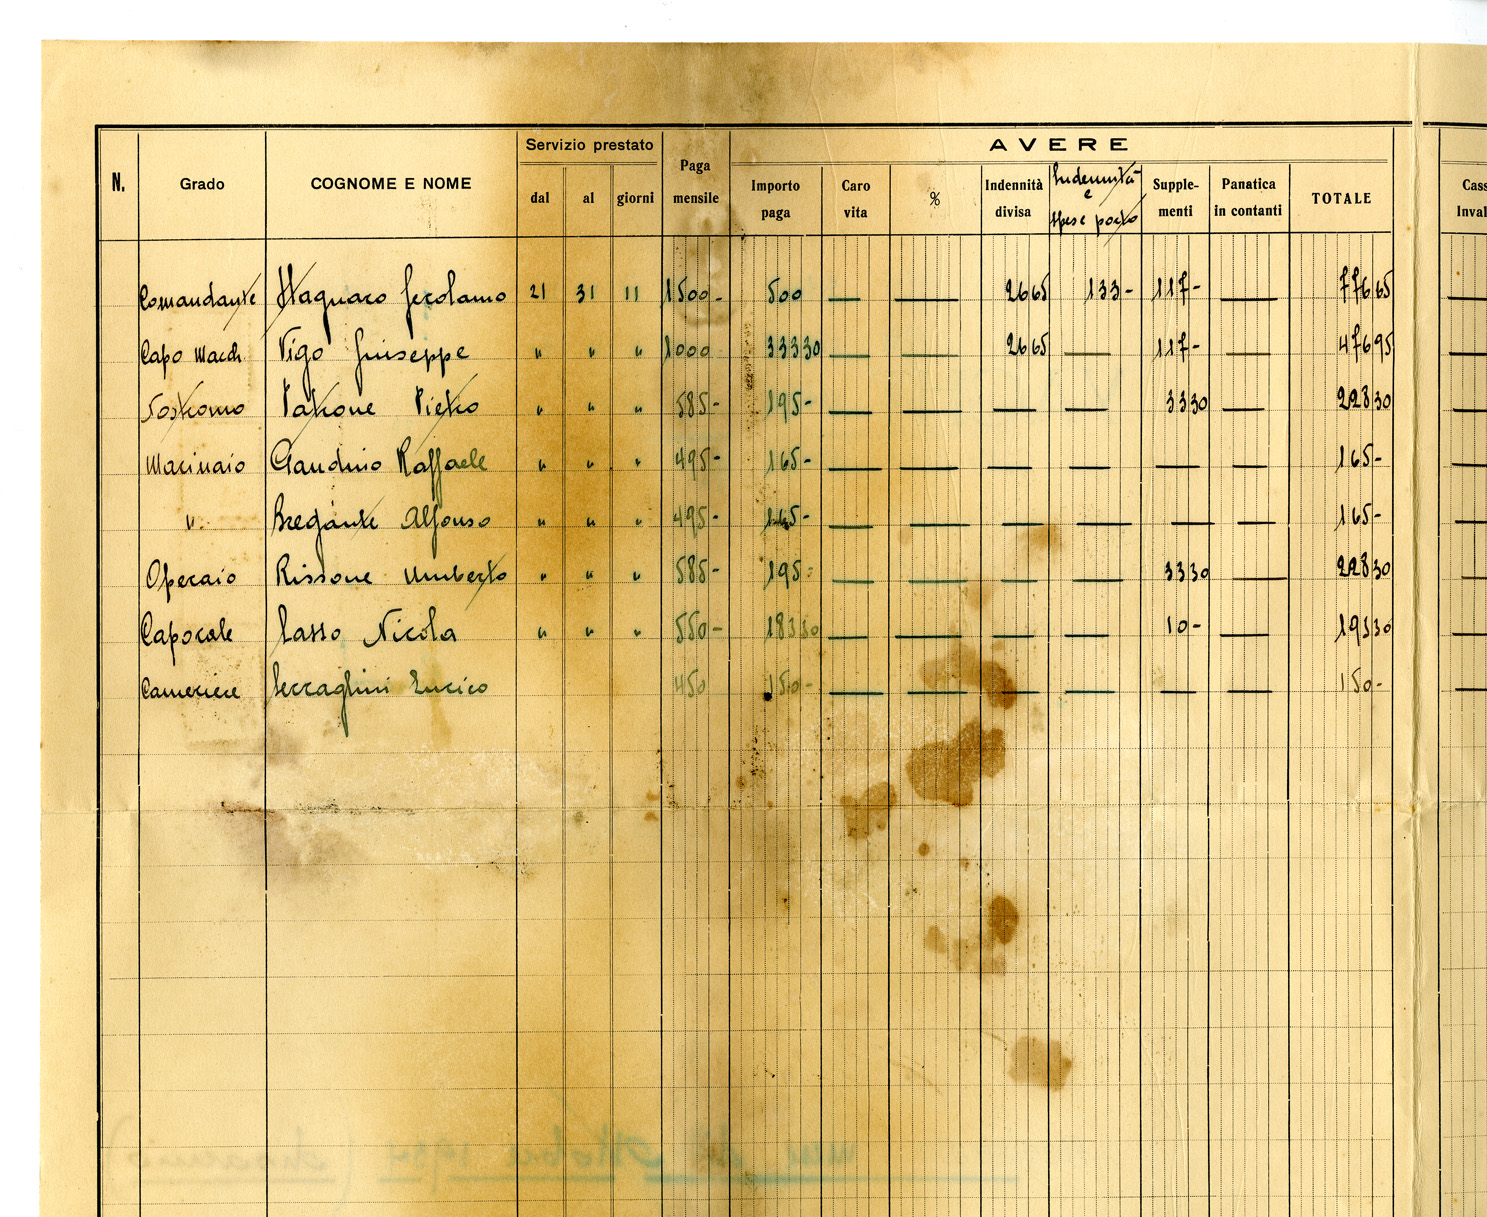 Servizio prestato
AVERE
N. Grado COGNOME E NOME dal al giorni Paga mensile Importo paga Caro vita % Indennità divisa Indennità e spese porto Supple-menti Panatica in contanti TOTALE Cass Inval
Comandante Stagnaro Gerolamo 21 31 11 1500- 500 — — 2665 133- 117- — 77665
Capo Macch. Vigo Giuseppe " " " 1000 33330 — — 2665 — 117- — 47695
Nostromo Patrone Pietro " " " 585- 195- — — — — 3330 — 22830
Marinaio Claudino Raffaele " " " 495- 165- — — — — — — 165-
" Bregante Alfonso " " " 495- 165- — — — — — — 165-
Operaio Rissone Umberto " " " 585- 195- — — — — 3330 — 22830
Caporale Sasso Nicola " " " 550- 18330 — — — — 10- — 19330
Cameriere Serraghini Enrico 450 150- — — — — — — 150-
mese di Ottobre 1934